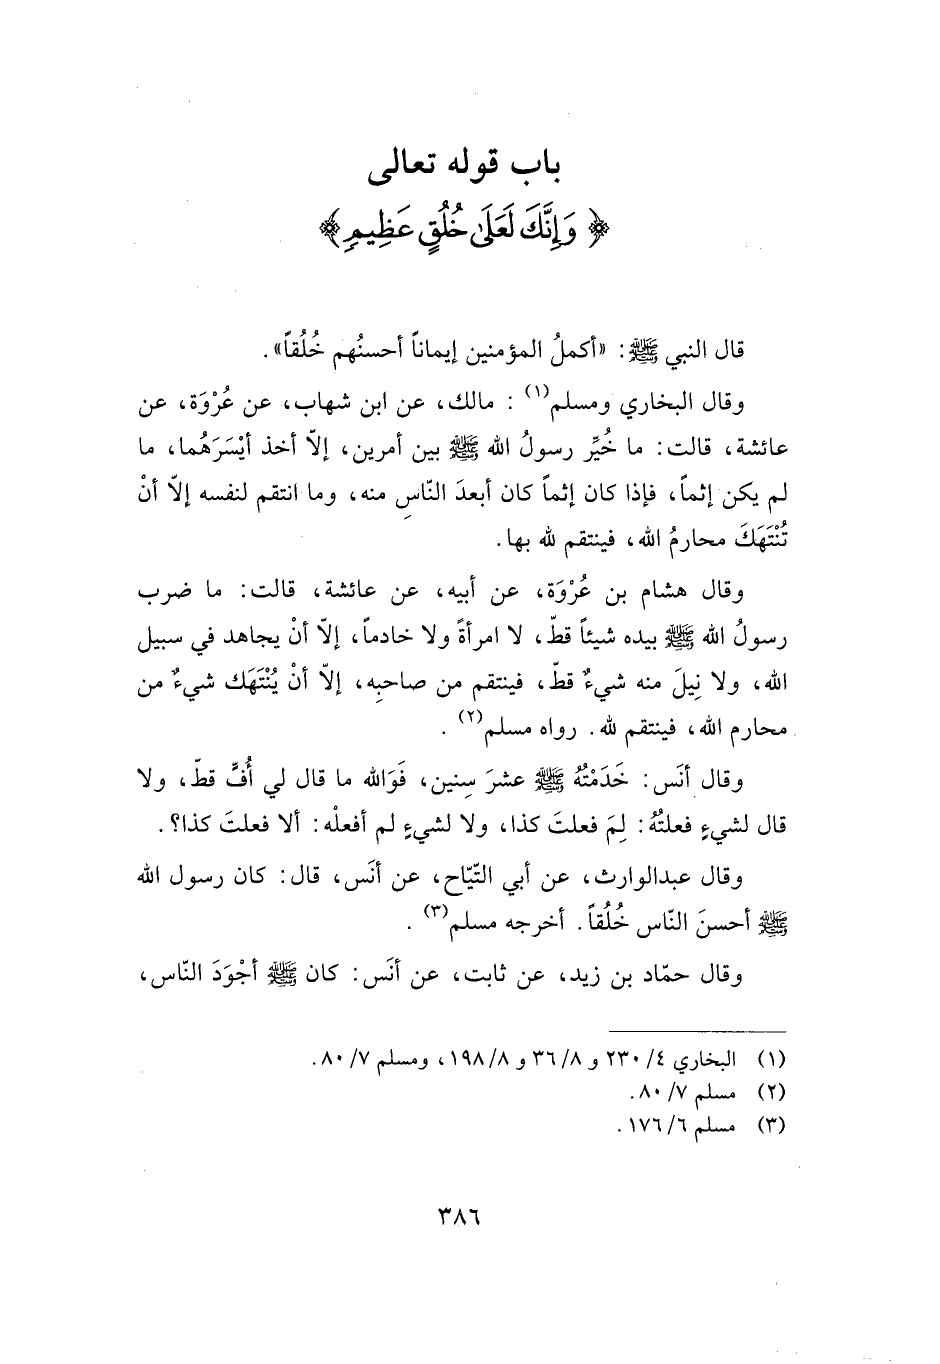 باب قوله تعالى
﴿وَإِنَّكَ لَعَلَىٰ خُلُقٍ عَظِيمٍ﴾
قال النبي ﷺ: «أكملُ المؤمنين إيماناً أحسنُهم خُلُقاً».
وقال البخاري ومسلم(١) : مالك، عن ابن شهاب، عن عُرْوَة، عن
عائشة، قالت: ما خُيِّر رسولُ الله ﷺ بين أمرين، إلاّ أخذ أيْسَرَهُما، ما
لم يكن إثماً، فإذا كان إثماً كان أبعدَ النّاسِ منه، وما انتقم لنفسه إلاّ أنْ
تُنْتَهَكَ محارمُ الله، فينتقم لله بها.
وقال هشام بن عُرْوَة، عن أبيه، عن عائشة، قالت: ما ضرب
رسولُ الله ﷺ بيده شيئاً قطّ، لا امرأةً ولا خادماً، إلاّ أنْ يجاهد في سبيل
الله، ولا نِيلَ منه شيءٌ قطّ، فينتقم من صاحبِه، إلاّ أنْ يُنْتَهَك شيءٌ من
محارم الله، فينتقم لله. رواه مسلم(٢) .
وقال أنَس: خَدَمْتُهُ ﷺ عشرَ سِنين، فَوَالله ما قال لي أُفٍّ قطّ، ولا
قال لشيءٍ فعلتُهُ: لِمَ فعلتَ كذا، ولا لشيءٍ لم أفعلْه: ألا فعلتَ كذا؟.
وقال عبدالوارث، عن أبي التّيّاح، عن أنَس، قال: كان رسول الله
ﷺ أحسنَ النّاس خُلُقاً. أخرجه مسلم(٣) .
وقال حمّاد بن زيد، عن ثابت، عن أنَس: كان ﷺ أجْوَدَ النّاس،
(١) البخاري ٤/ ٢٣٠ و ٨/ ٣٦ و ٨/ ١٩٨، ومسلم ٧/ ٨٠.
(٢) مسلم ٧/ ٨٠.
(٣) مسلم ٦/ ١٧٦.
٣٨٦